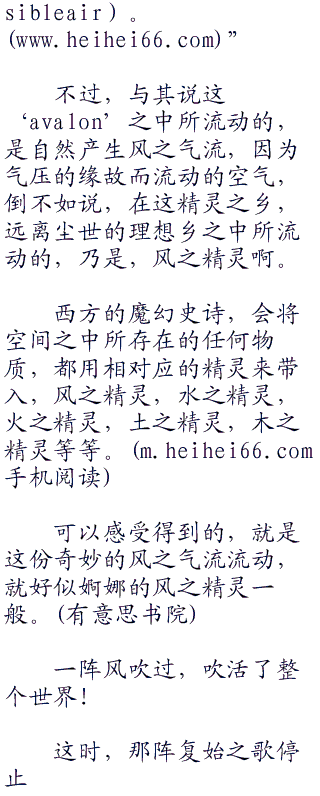 sibleair)。
(www.heihei66.com)”
不过，与其说这
‘avalon’之中所流动的，
是自然产生风之气流，因为
气压的缘故而流动的空气，
倒不如说，在这精灵之乡，
远离尘世的理想乡之中所流
动的，乃是，风之精灵啊。
西方的魔幻史诗，会将
空间之中所存在的任何物
质，都用相对应的精灵来带
入，风之精灵，水之精灵，
火之精灵，土之精灵，木之
精灵等等。(m.heihei66.com
手机阅读)
可以感受得到的，就是
这份奇妙的风之气流流动，
就好似婀娜的风之精灵一
般。(有意思书院)
一阵风吹过，吹活了整
个世界！
这时，那阵复始之歌停
止